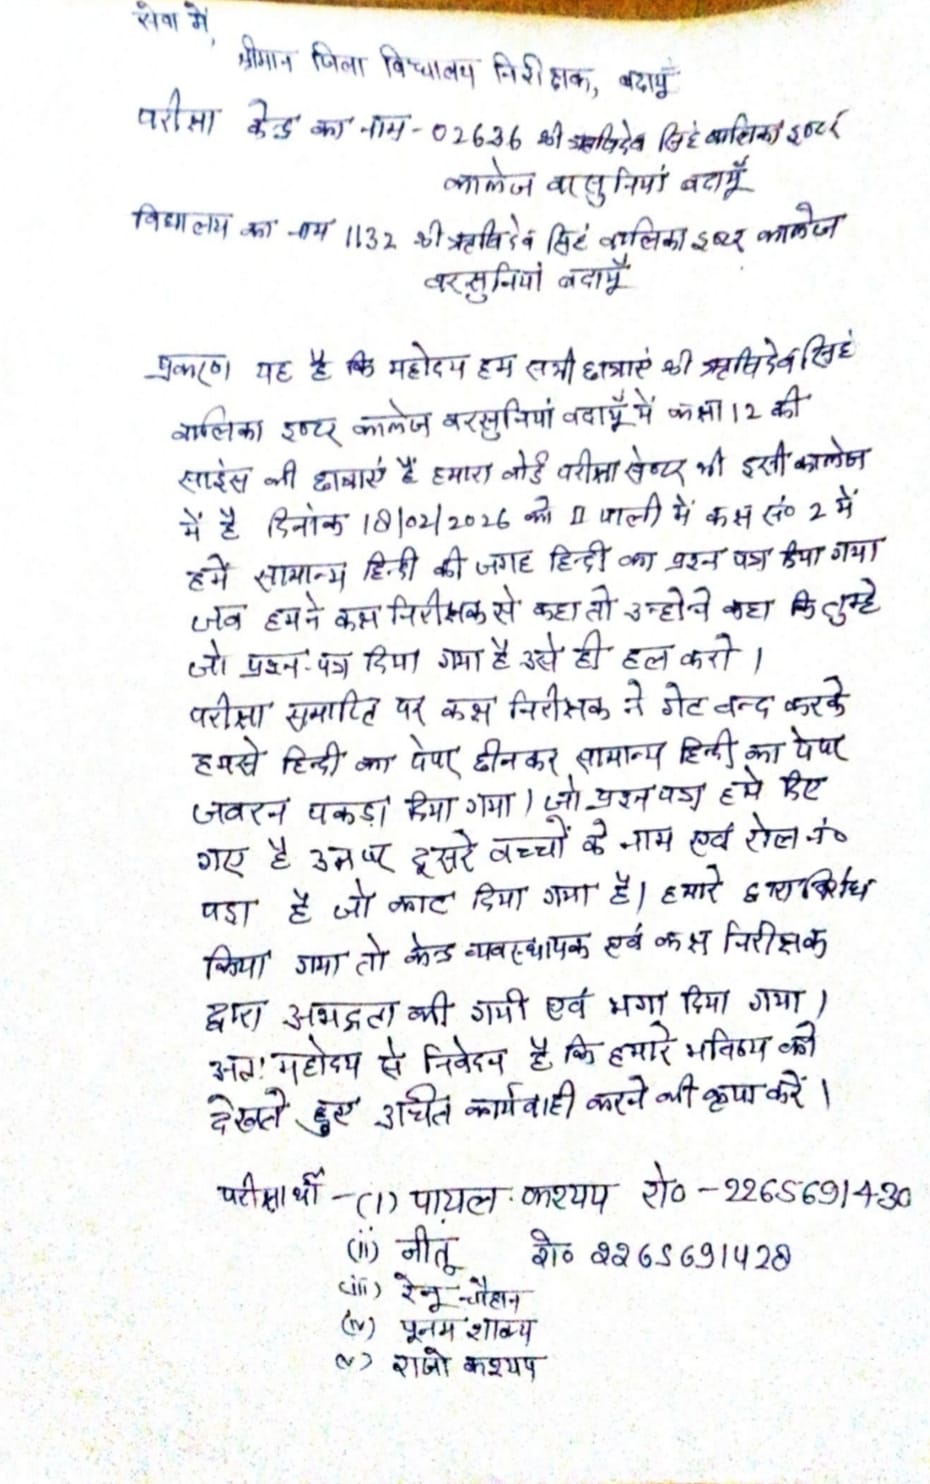 सेवा में,
श्रीमान जिला विद्यालय निरीक्षक, बदायूँ
परीक्षा केन्द्र का नाम - 02636 श्री ऋषिदेव सिहं बालिका इण्टर
कालेज वरसुनियां बदायूँ
विद्यालय का नाम 1132 श्री ऋषिदेव सिहं बालिका इण्टर कालेज
वरसुनियां बदायूँ
प्रकरण यह है कि महोदय हम सभी छात्राएं श्री ऋषिदेव सिहं
बालिका इण्टर कालेज वरसुनियां बदायूँ में कक्षा 12 की
साइंस की छात्राएं हैं हमारा बोर्ड परीक्षा सेण्टर भी इसी कालेज
में है दिनांक 18/02/2026 को II पाली में कक्ष सं० 2 में
हमें सामान्य हिन्दी की जगह हिन्दी का प्रश्न पत्र दिया गया
जब हमने कक्ष निरीक्षक से कहा तो उन्होने कहा कि तुम्हे
जो प्रश्न-पत्र दिया गया है उसे ही हल करो।
परीक्षा समाप्ति पर कक्ष निरीक्षक ने गेट बन्द करके
हमसे हिन्दी का पेपर छीनकर सामान्य हिन्दी का पेपर
जबरन पकड़ा दिया गया। जो प्रश्न पत्र हमे दिए
गए है उनपर दूसरे बच्चों के नाम एवं रोल नं०
पडा है जो काट दिया गया है। हमारे द्वारा विरोध
किया गया तो केन्द्र व्यवस्थापक एवं कक्ष निरीक्षक
द्वारा अभद्रता की गयी एवं भगा दिया गया।
अतः महोदय से निवेदन है कि हमारे भविष्य को
देखते हुए उचित कार्यवाही करने की कृपा करें।
परीक्षार्थी - (i) पायल कश्यप रो० - 2265691430
(ii) नीतू रो० 2265691428
(iii) रेनू चौहान
(iv) पूनम शाक्य
(v) राजो कश्यप